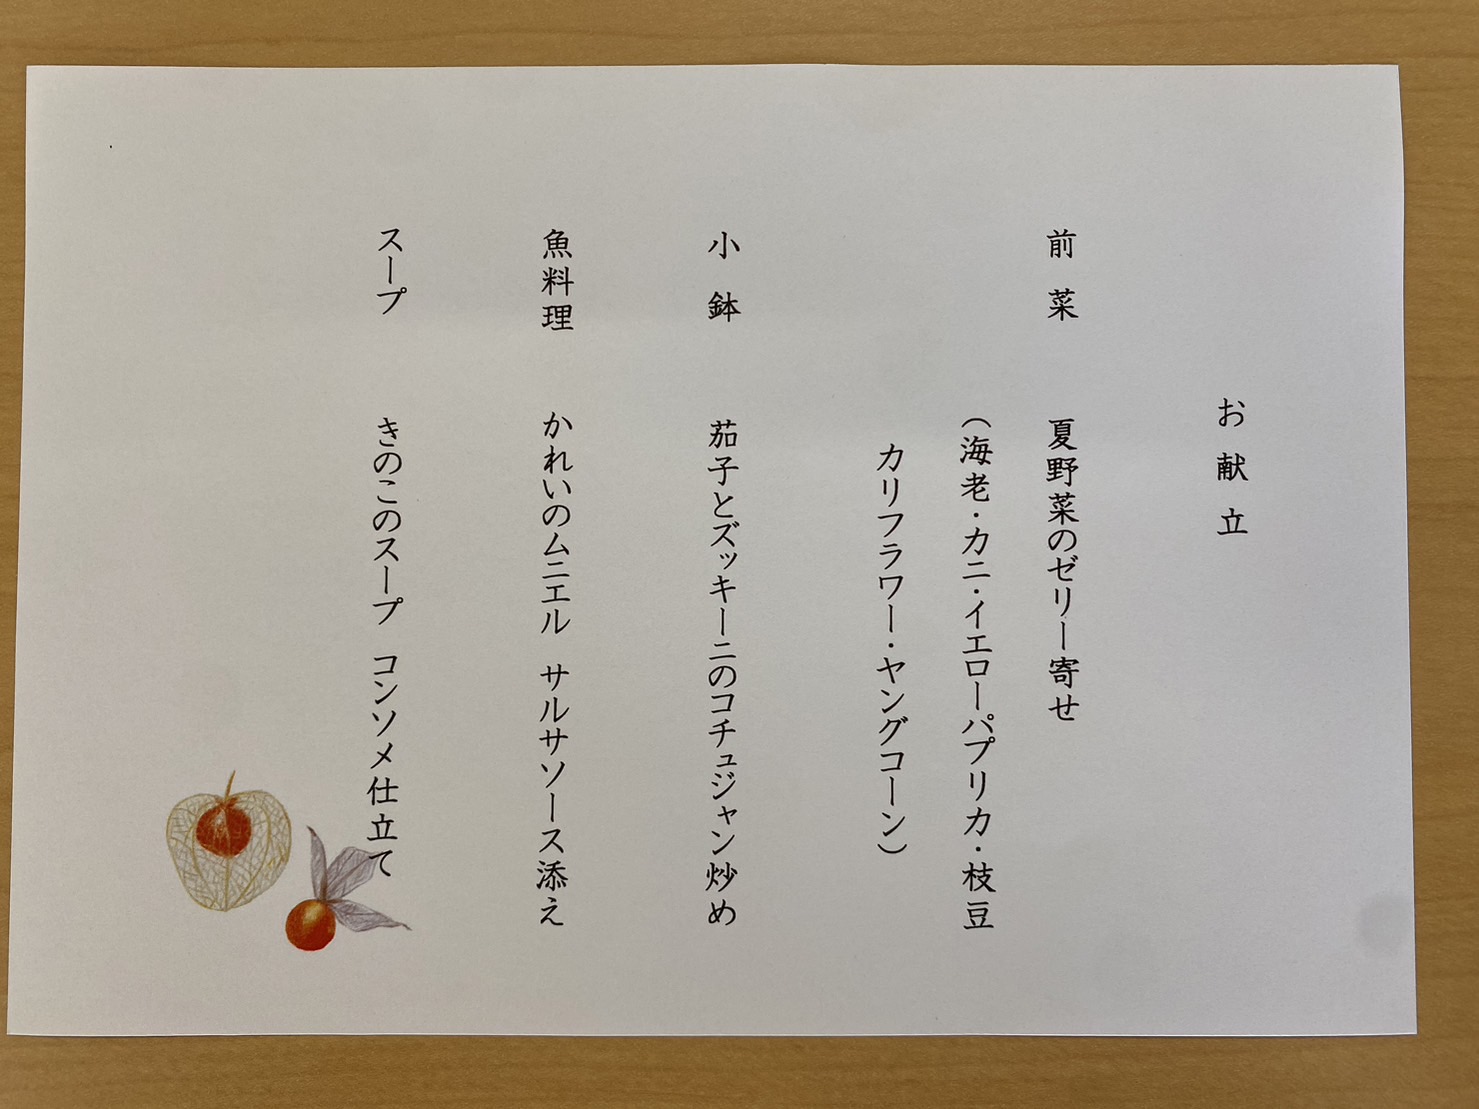 お献立
前菜　夏野菜のゼリー寄せ
（海老・カニ・イエローパプリカ・枝豆
カリフラワー・ヤングコーン）
小鉢　茄子とズッキーニのコチュジャン炒め
魚料理　かれいのムニエル　サルサソース添え
スープ　きのこのスープ　コンソメ仕立て